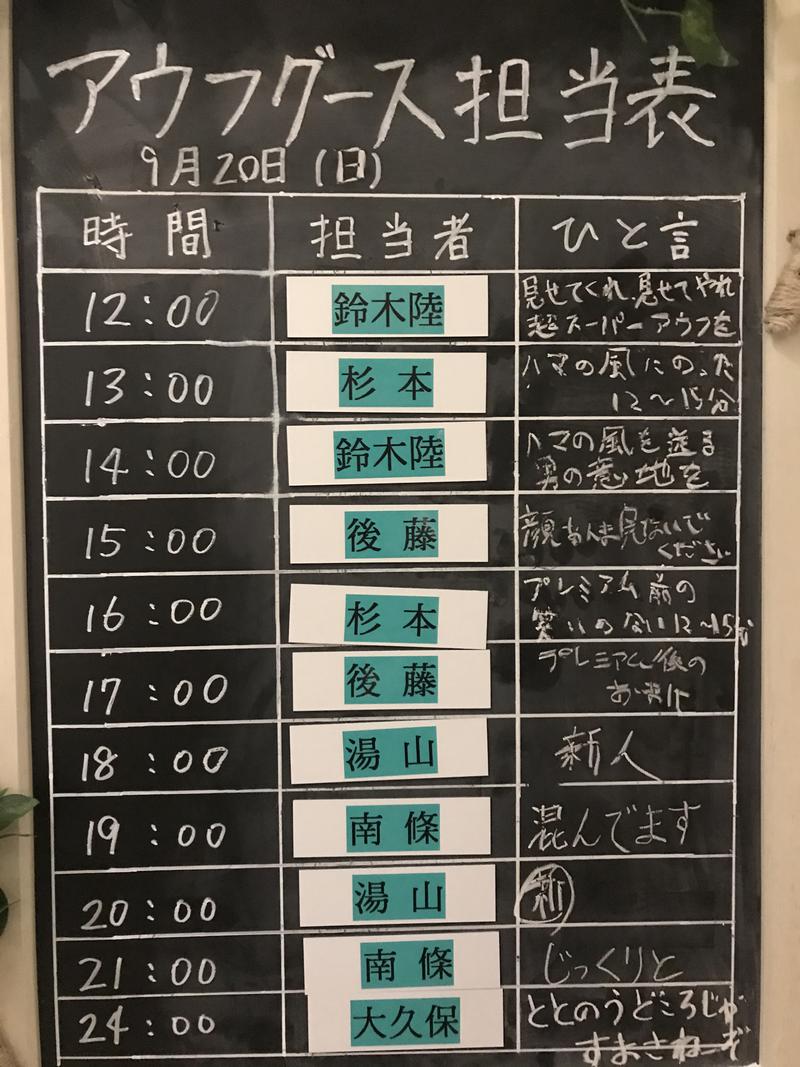 アウフグース担当表
9月20日(日)
時間 担当者 ひと言
12:00 鈴木陸 見せてくれ、見せてやれ
超スーパーアウフを
13:00 杉本 ハマの風にのった
12~15分
14:00 鈴木陸 ハマの風を送る
男の意地を
15:00 後藤 顔あんま見ないで
ください
16:00 杉本 プレミアム前の
笑いのない12~15分
17:00 後藤 プレミアム後の
18:00 湯山 新人
19:00 南條 混んでます
20:00 湯山 新
21:00 南條 じっくりと
24:00 大久保 ととのうどころじゃ
すまさねーぞ